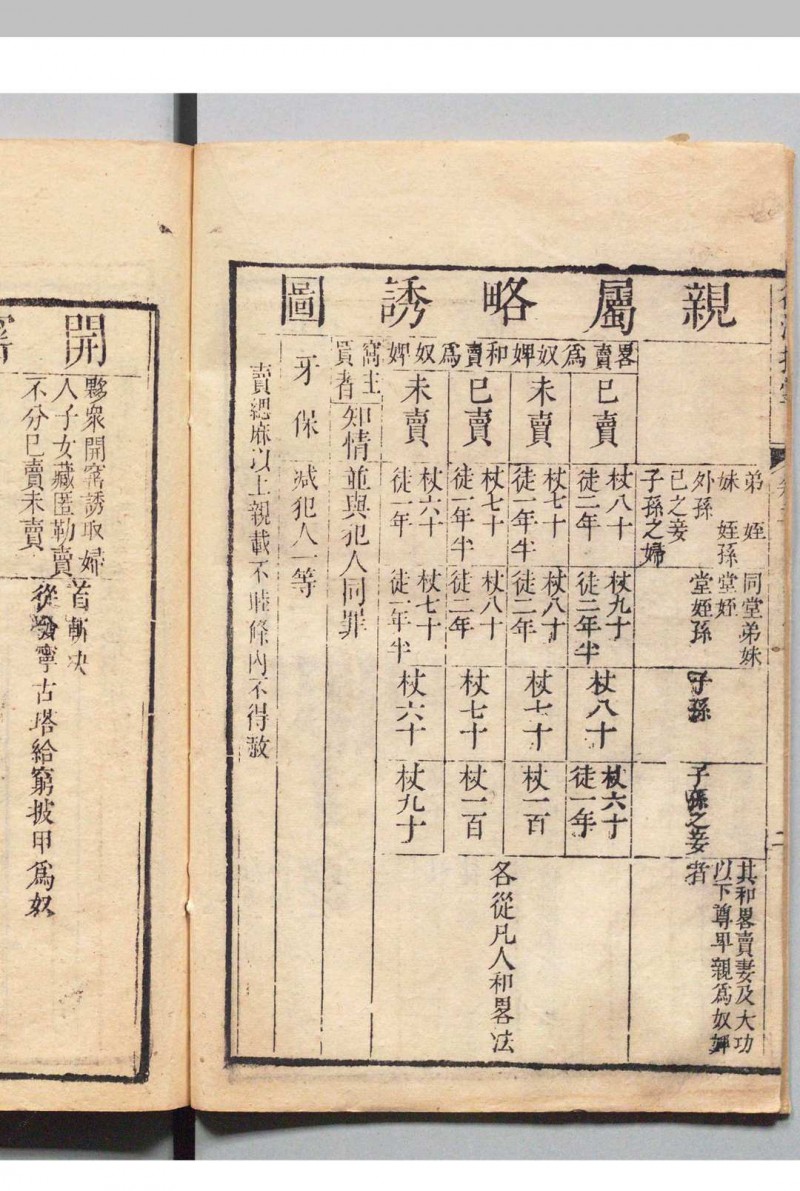 親屬略誘圖
弟姪
妹姪孫
外孫
己之妾
子孫之婦
同堂弟妹
堂姪
堂姪孫
子孫
子孫之妾
其和畧賣妻及大功
以下尊卑親爲奴婢
者
畧賣爲奴婢
已賣
杖八十
徒二年
杖九十
徒二年半
杖八十
杖六十
徒一年
未賣
杖七十
徒一年半
杖八十
徒二年
杖七十
杖一百
和賣爲奴婢
已賣
杖七十
徒一年半
杖八十
徒二年
杖七十
杖一百
未賣
杖六十
徒一年
杖七十
徒一年半
杖六十
杖九十
各從凡人和畧法
窩主
買者
知情並與犯人同罪
牙保減犯人一等
賣緦麻以上親載不睦條內不得赦
開窰
夥衆開窰誘取婦
人子女藏匿勒賣
不分已賣未賣
首斬決
從發寧古塔給窮披甲爲奴